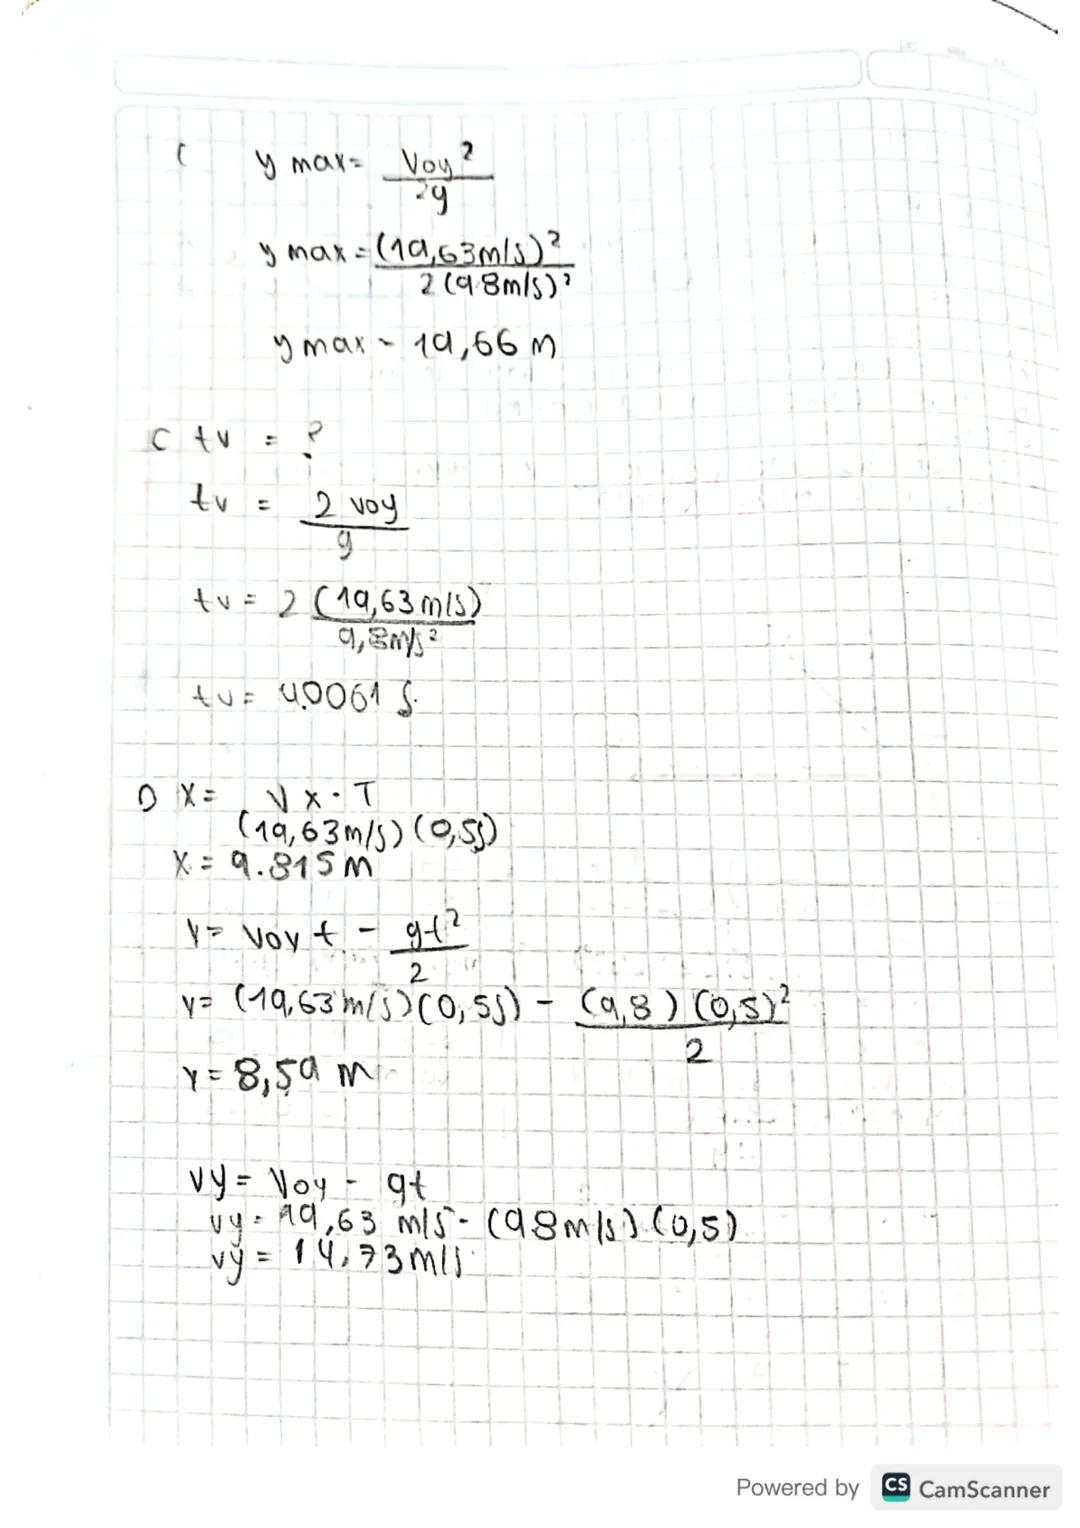 C y max = Voy²
2g
y max = (19,63m/s)²
2(9.8m/s)²
y max - 19,66 m
C tv = ?
tv = 2 voy
g
tv = 2 (19,63 m/s)
9,8m/s²
tv = 4.0061 s.
D X = Vx · T
(19,63 m/s) (0,5s)
X = 9.815 m
Y = Voy t - gt²
2
Y = (19,63 m/s)(0,5s) - (9,8) (0,5)²
2
Y = 8,59 m
Vy = Voy - gt
Vy = 19,63 m/s - (98m/s) (0,5)
Vy = 14,73 m/s
Powered by CS CamScanner